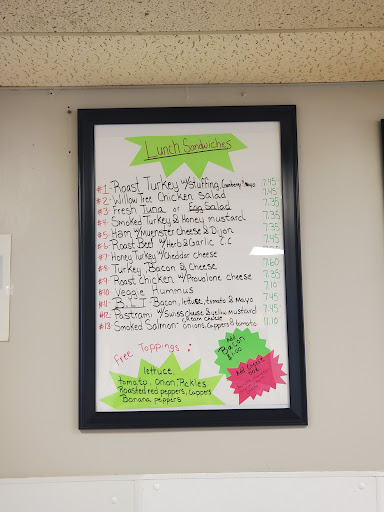 Lunch Sandwiches
#1- Roast Turkey w/stuffing, Cranberry & Mayo 7.45
#2- Willow Tree Chicken Salad 7.45
#3- Fresh Tuna or Egg Salad 7.35
#4- Smoked Turkey & Honey mustard 7.35
#5 Ham w/Muenster Cheese & Dijon 7.35
#6- Roast Beef w/Herb & Garlic C.C 7.45
#7- Honey Turkey w/Cheddar cheese
#8- Turkey, Bacon & Cheese 7.60
#9- Roast Chicken w/Provalone cheese 7.35
#10- Veggie Hummus 7.10
#11- B.L.T Bacon, lettuce, tomato & Mayo 7.45
#12- Pastrami w/Swiss Cheese & yellow mustard 7.45
#13- Smoked Salmon- cream cheese onions, Cappers & tomato
Free Toppings:
lettuce,
tomato, onion, Pickles
Roasted red peppers, Cappers
Banana peppers
Add
Bacon
$1.00